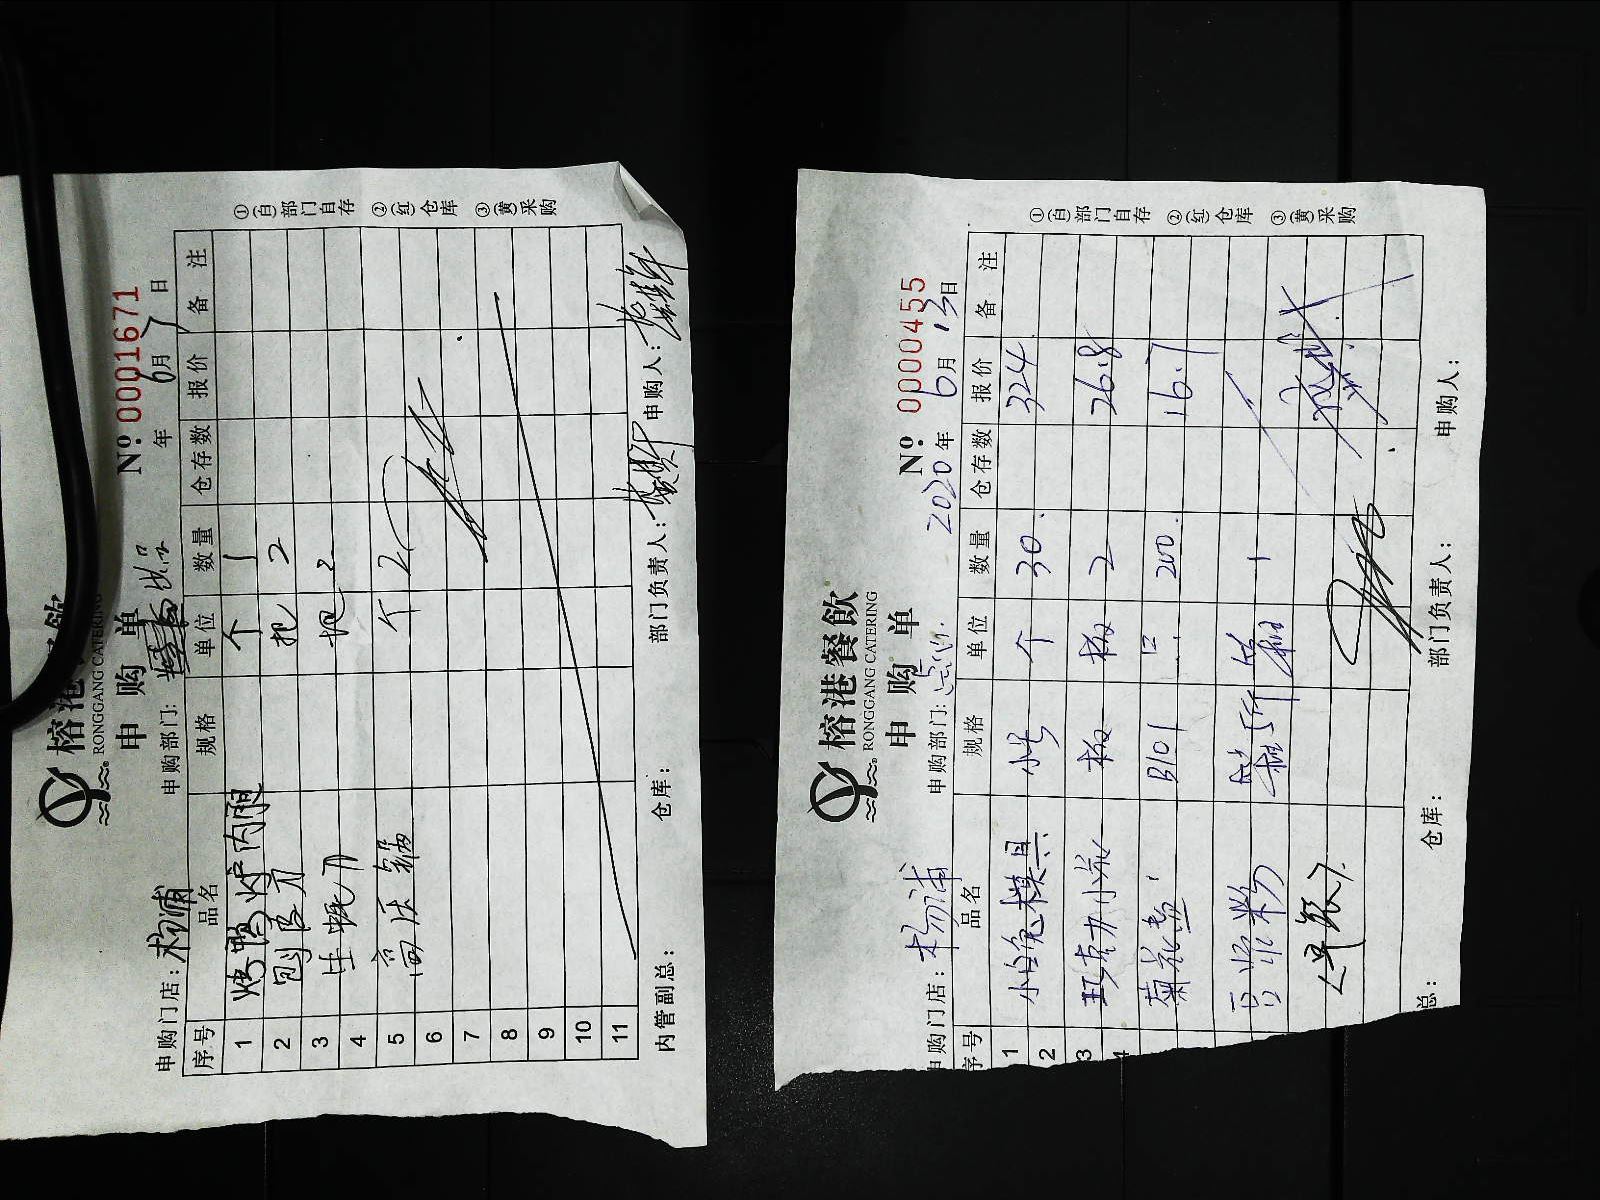 榕港餐飲
RONGGANG CATERING
申购单
№ 0001671
申购门店：杨浦
申购部门：
出品
年 6月7日
序号 品名 规格 单位 数量 仓存数 报价 备注
1 烤鸭炉内胆 个 1
2 刨皮刀 把 2
3 生蚝刀 把 2
4
5 高压锅 个 2
6
7
8
9
10
11
内管副总：
仓库：
部门负责人：
申购人：
①(白)部门自存 ②(红)仓库 ③(黄)采购
榕港餐飲
RONGGANG CATERING
申购单
№ 0000455
申购门店：杨浦
申购部门：
2020年 6月13日
序号 品名 规格 单位 数量 仓存数 报价 备注
1 小白兔模具 小号 个 30. 324
2
3 板 板 2 26.8
4 菊花盏 B101 只 200. 16.7
1
总：
仓库：
部门负责人：
申购人：
①(白)部门自存 ②(红)仓库 ③(黄)采购